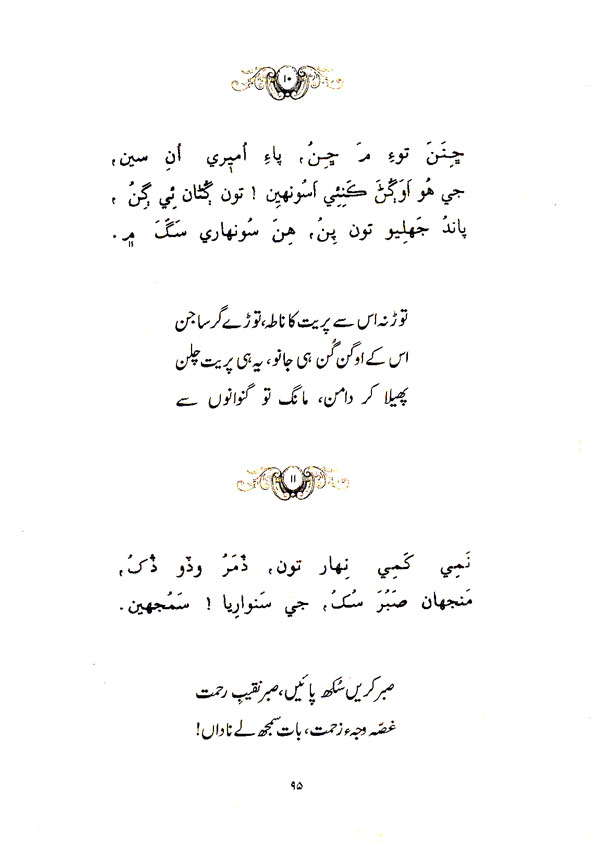 ۱۰
ڇِنَنَ توءِ مَ ڇِنُ، پاءِ اُميِري اُنِ سين،
جي هُو اَوَڳُڻَ ڪَنِئِي اَسُونهِين ! تون ڳُڻان ئِي ڳِنُ ،
پاندُ جَهلِيو تون پِنُ، هِنَ سونهاري سَڱَ ۾.
توڑ نہ اس سے پریت کا ناطہ، توڑے گر ساجن
اس کے اوگن گُن ہی جانو، یہ ہی پریت چلن
پھیلا کر دامن، مانگ تو گنوانوں سے
۱۱
نَمِي کَمِي نِهار تون، ڏَمَرُ وڏو ڏُکُ،
مَنجهان صَبُرَ سُکُ، جي سَنوارِيا ! سَمُجهين.
صبر کریں سُکھ پائیں، صبر نقیبِ رحمت
غصّہ وجہء زحمت، بات سمجھ لے ناداں!
۹۵